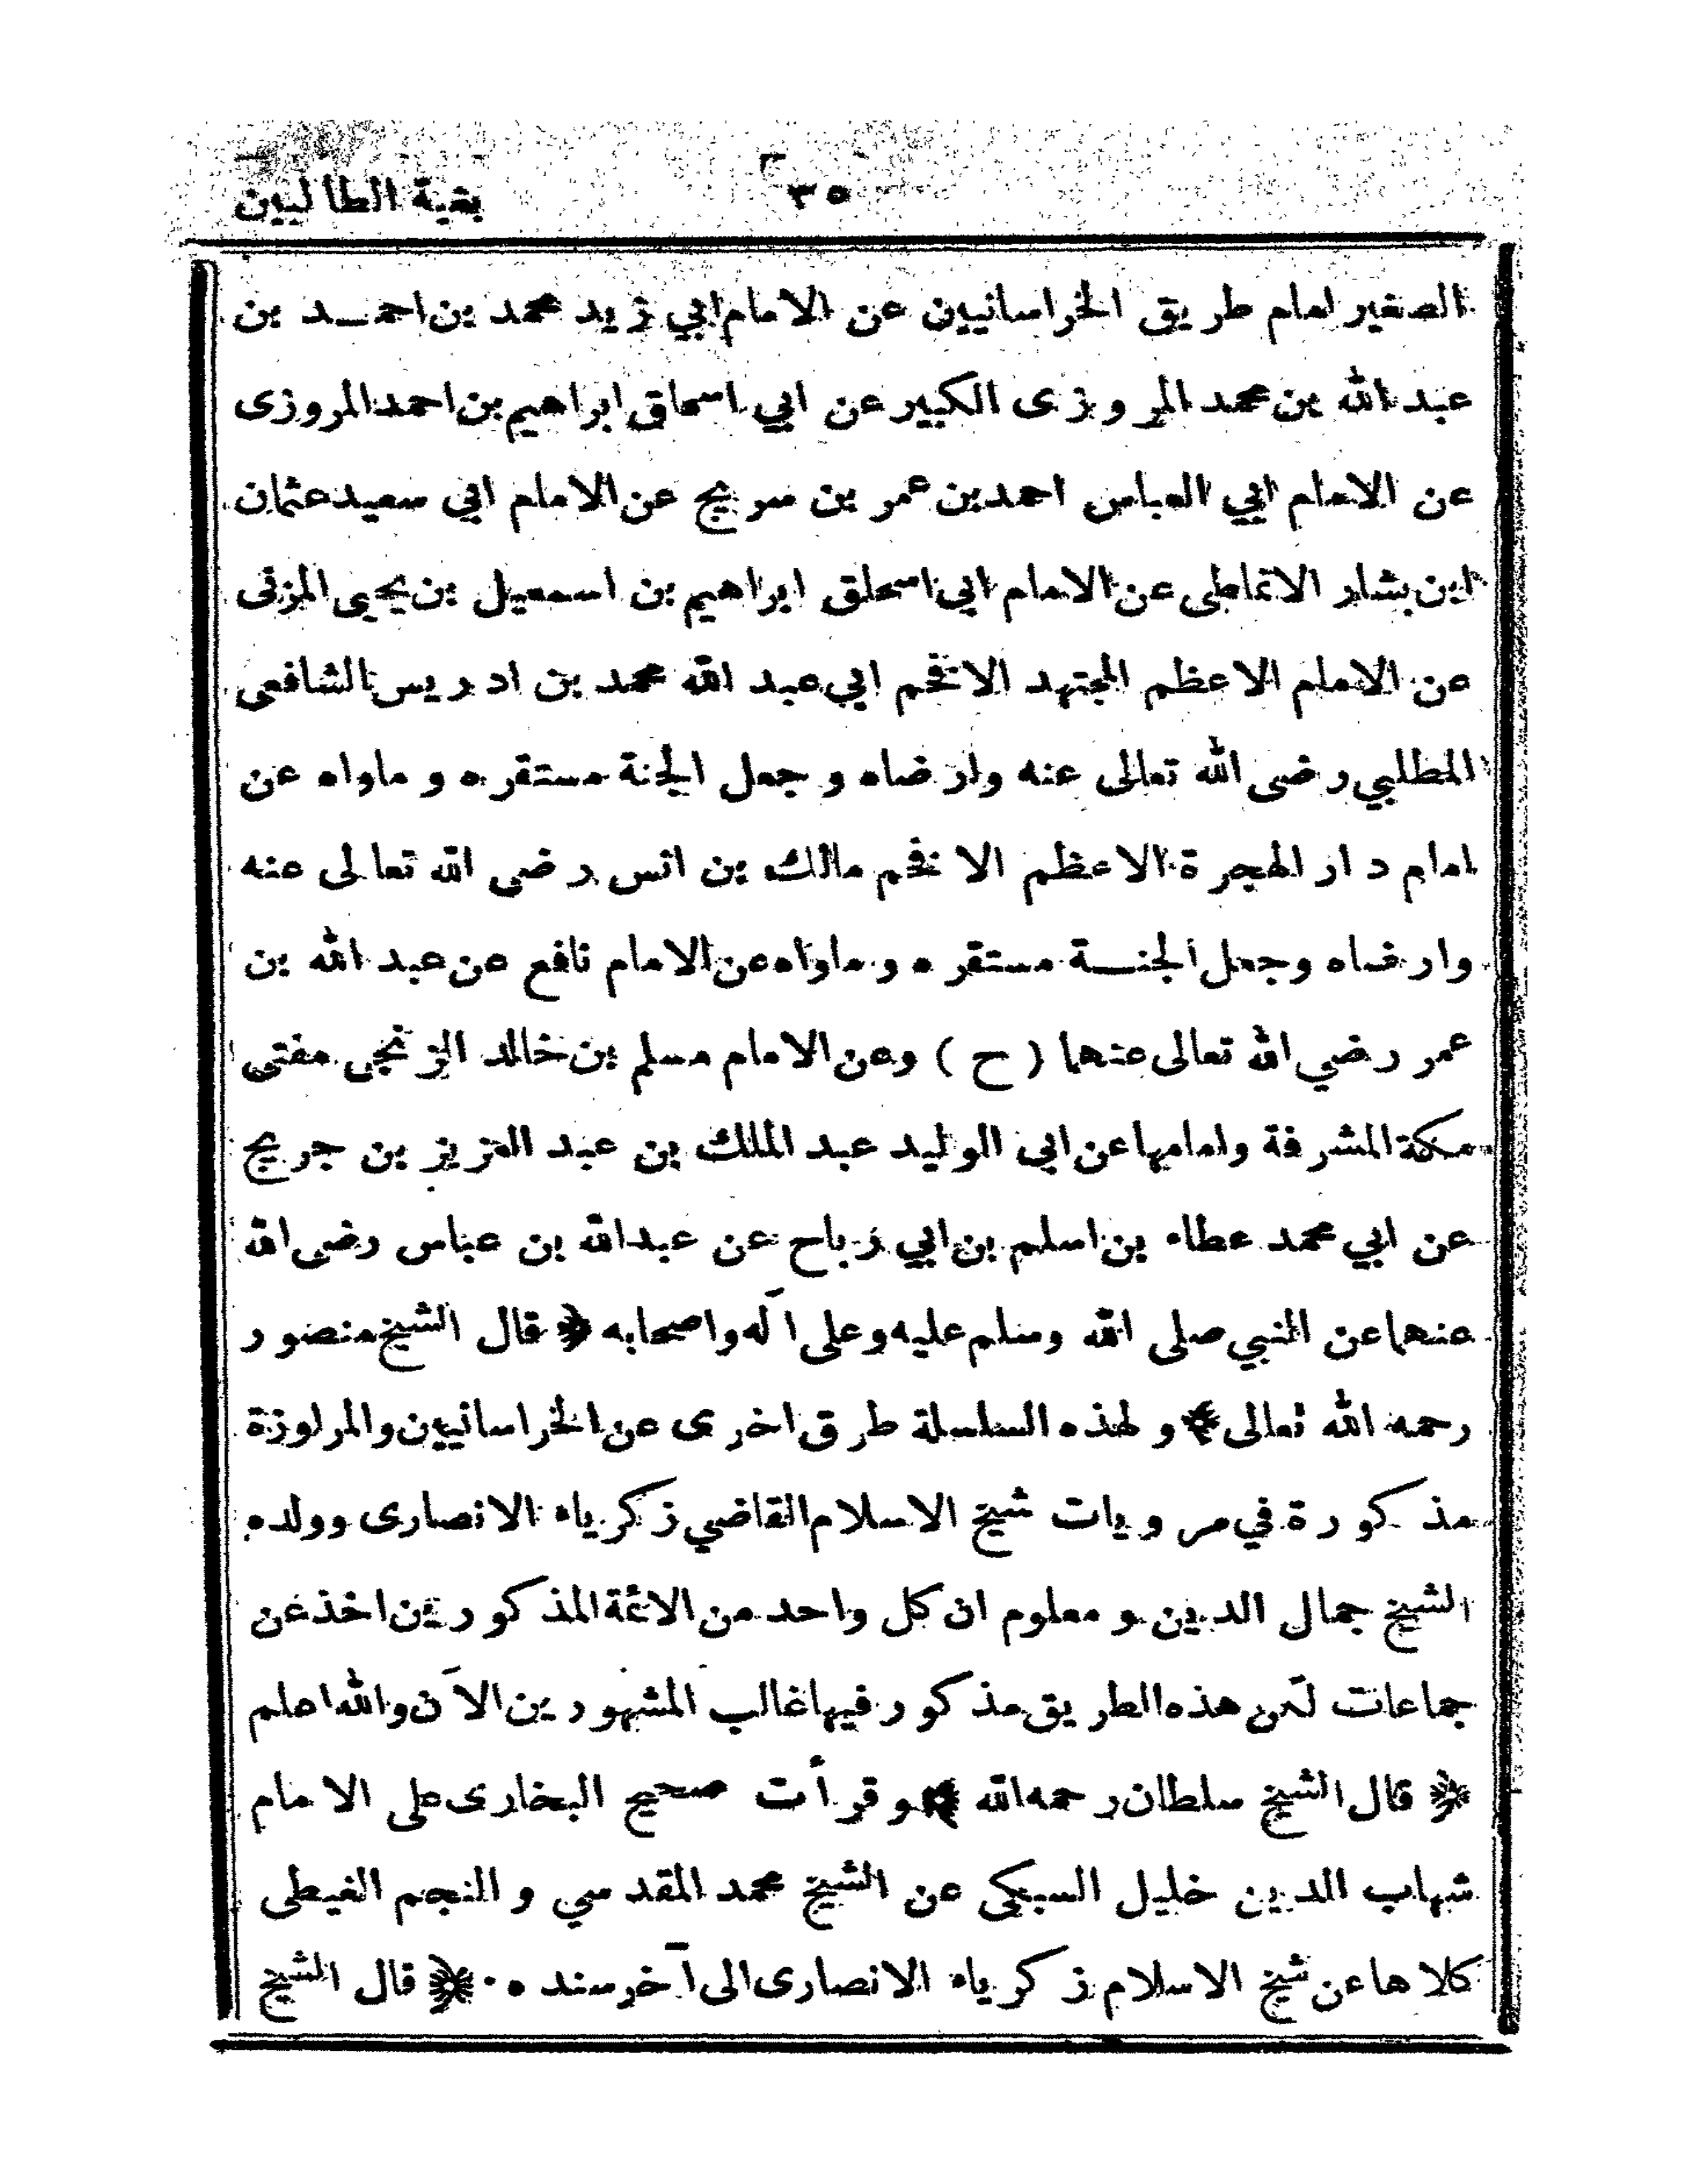 ٣٥ بغية الطالبين
الصغير امام طريق الخراسانيين عن الامام ابي زيد محمد بن احمد بن
عبد الله بن محمد المروزى الكبير عن ابي اسحاق ابراهيم بن احمد المروزى
عن الامام ابي العباس احمد بن عمر بن سريج عن الامام ابي سعيد عثمان
ابن بشار الانماطى عن الامام ابى اسحاق ابراهيم بن اسمعيل بن يحيى المزنى
عن الامام الاعظم المجتهد الافخم ابي عبد الله محمد بن ادريس الشافعى
المطلبي رضى الله تعالى عنه وارضاه وجعل الجنة مستقره وماواه عن
امام دار الهجرة الاعظم الافخم مالك بن انس رضى الله تعالى عنه
وارضاه وجعل الجنة مستقره وماواه عن الامام نافع عن عبد الله بن
عمر رضي الله تعالى عنهما ( ح ) وعن الامام مسلم بن خالد الزنجى مفتى
مكة المشرفة وامامها عن ابى الوليد عبد الملك بن عبد العزيز بن جريج
عن ابي محمد عطاء بن اسلم بن ابي رباح عن عبدالله بن عباس رضى الله
عنهما عن النبي صلى الله وسلم عليه وعلى اۤله واصحابه ﴿ قال الشيخ منصور
رحمه الله تعالى ﴾ ولهذه السلسلة طرق اخرى عن الخراسانيين والمراوزة
مذكورة في مرويات شيخ الاسلام القاضي زكرياء الانصارى وولده
الشيخ جمال الدين ومعلوم ان كل واحد من الائمة المذكورين اخذ عن
جماعات لكن هذه الطريق مذكور فيها غالب المشهورين الآن والله اعلم
﴿ قال الشيخ سلطان رحمه الله ﴾ وقرأت صحيح البخارى على الامام
شهاب الدين خليل السبكى عن الشيخ محمد المقدسي والنجم الغيطى
كلاهما عن شيخ الاسلام زكرياء الانصارى الى آخر سنده . ﴿ قال الشيخ